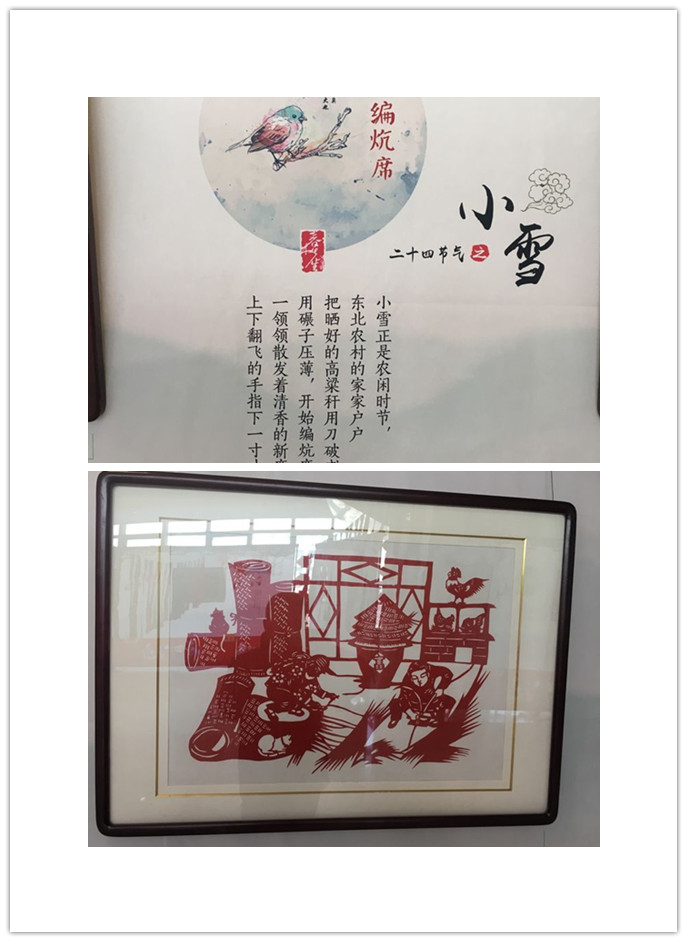 编炕席
小雪
二十四节气之
小雪正是农闲时节，
东北农村的家家户户
把晒好的高粱秆用刀破
用碾子压薄，开始编炕
一领领散发着清香的新
上下翻飞的手指下一寸